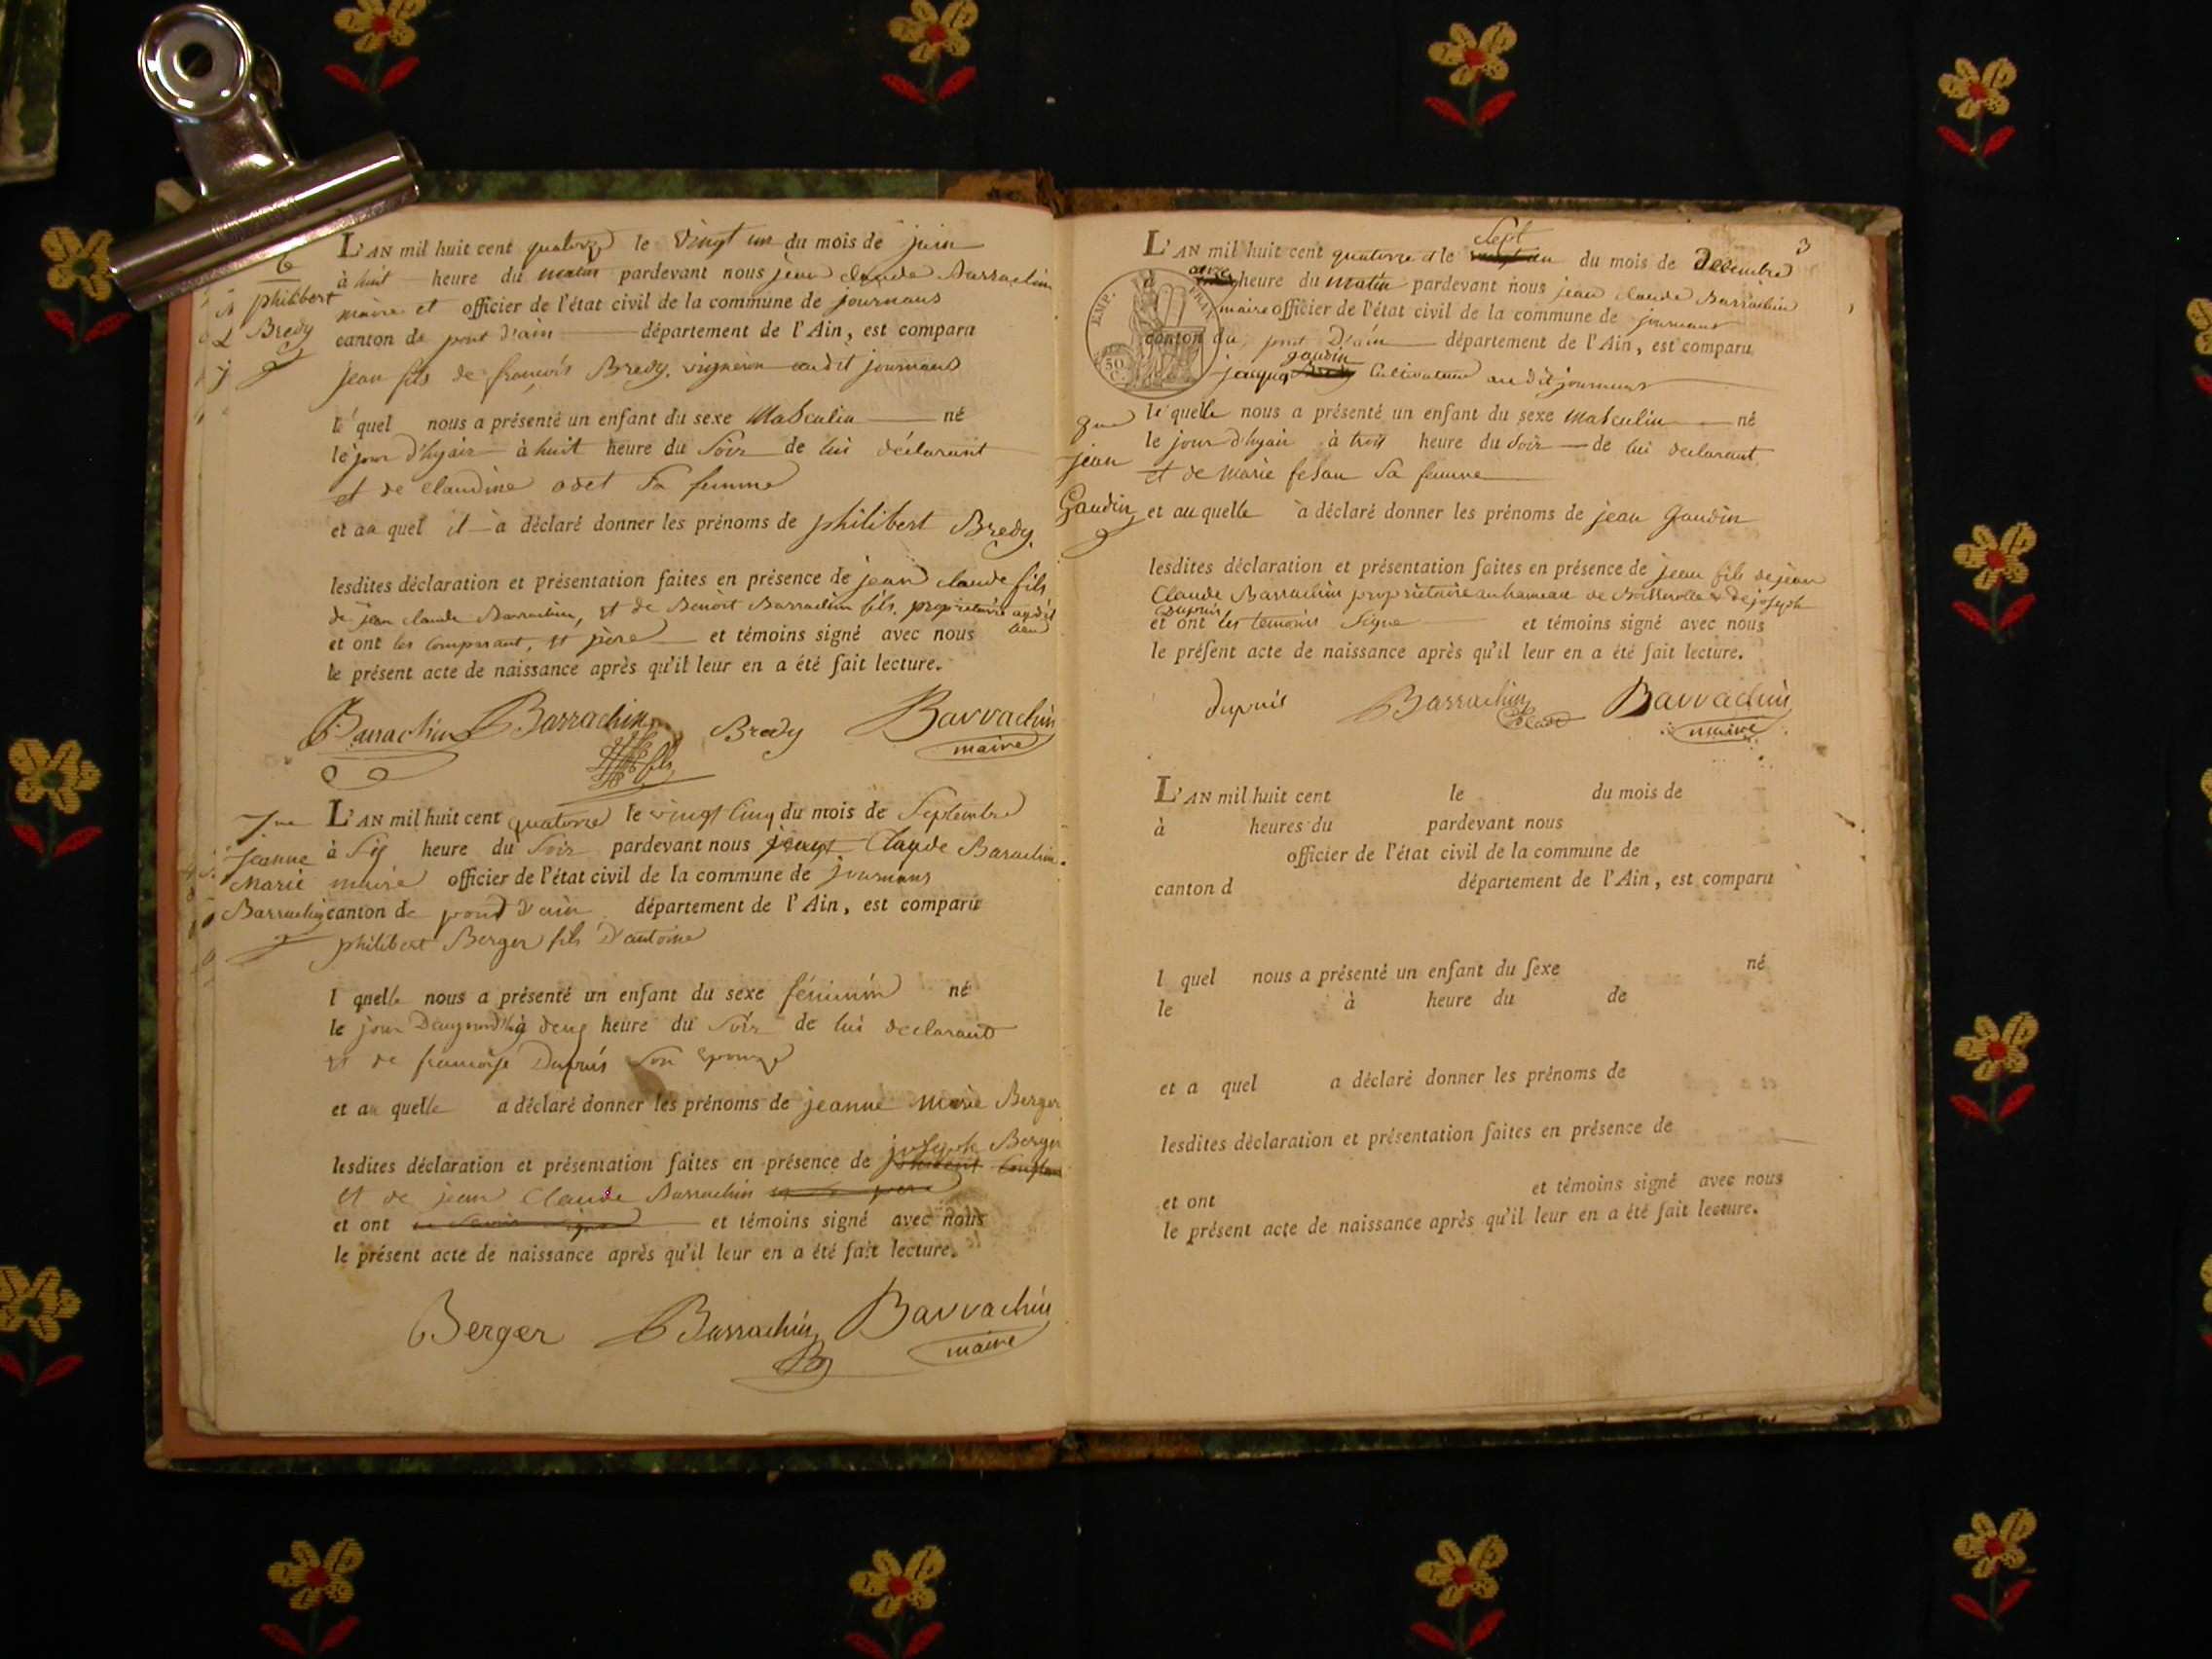 6
philibert
Bredy
L'AN mil huit cent quatorze le vingt un du mois de juin
à huit heure du matin pardevant nous jean claude Barrachin
maire et officier de l'état civil de la commune de journans
canton de pont d'ain département de l'Ain, est comparu
jean fils de françois Bredy, vigneron audit journans
le quel nous a présenté un enfant du sexe Masculin né
le jour d'hyair à huit heure du Soir de lui déclarant
et de claudine odet Sa femme
et au quel il a déclaré donner les prénoms de philibert Bredy.
lesdites déclaration et présentation faites en présence de jean claude fils
de jean claude Barrachin, et de Benoit Barrachin fils, propriétaire audit
lieu
et ont les comparant, et père et témoins signé avec nous
le présent acte de naissance après qu'il leur en a été fait lecture.
Barrachin Barrachin Bredy Barrachin
fils maire
7me
Jeanne
Marie
Barrachin
L'AN mil huit cent quatorze le vingt cinq du mois de Septembre
à Six heure du Soir pardevant nous Claude Barrachin
maire officier de l'état civil de la commune de journans
canton de pont d'ain département de l'Ain, est comparu
philibert Berger fils d'antoine
l quelle nous a présenté un enfant du sexe féminin né
le jour D'aujourd'hui à deux heure du Soir de lui declarant
et de françoise Dupuis Son epouze
et au quelle a déclaré donner les prénoms de jeanne Marie Berger
joseph Berger
lesdites déclaration et présentation faites en présence de
et de jean Claude Barrachin
et ont et témoins signé avec nous
le présent acte de naissance après qu'il leur en a été fait lecture.
Berger Barrachin Barrachin
maire
3
Sept
L'AN mil huit cent quatorze et le du mois de Decembre
à onze heure du matin pardevant nous jean claude Barrachin
maire officier de l'état civil de la commune de journans
canton du pont D'ain département de l'Ain, est comparu
gaudin
jacque Cultivateur audit journans
EMP. FRAN.
50
C.
jean
Gaudin
le quelle nous a présenté un enfant du sexe Masculin né
le jour d'hyair à trois heure du Soir de lui declarant
et de Marie fesan Sa femme
et au quelle a déclaré donner les prénoms de jean Gaudin
lesdites déclaration et présentation faites en présence de jean fils de jean
Claude Barrachin propriétaire au hameau de & de joseph
Dupuis
et ont les temoins Signe et témoins signé avec nous
le présent acte de naissance après qu'il leur en a été fait lecture.
dupuis Barrachin Barrachin
maire
L'AN mil huit cent le du mois de
à heures du pardevant nous
officier de l'état civil de la commune de
canton d département de l'Ain, est comparu
l quel nous a présenté un enfant du sexe né
le à heure du de
et a quel a déclaré donner les prénoms de
lesdites déclaration et présentation faites en présence de
et ont et témoins signé avec nous
le présent acte de naissance après qu'il leur en a été fait lecture.